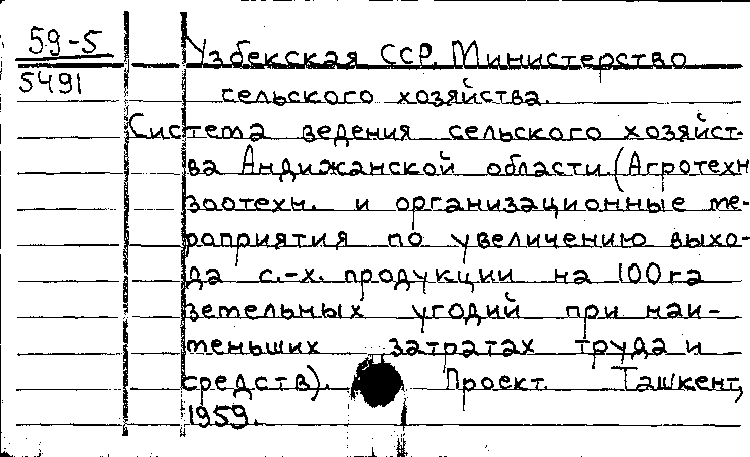 59-5
5491
Узбекская ССР. Министерство
сельского хозяйства.
Система ведения сельского хозяйст-
ва Андижанской области. (Агротехн.
зоотехн. и организационные ме-
роприятия по увеличению выхо-
да с.-х. продукции на 100 га
земельных угодий при наи-
меньших затратах труда и
средств). Проект. Ташкент,
1959.